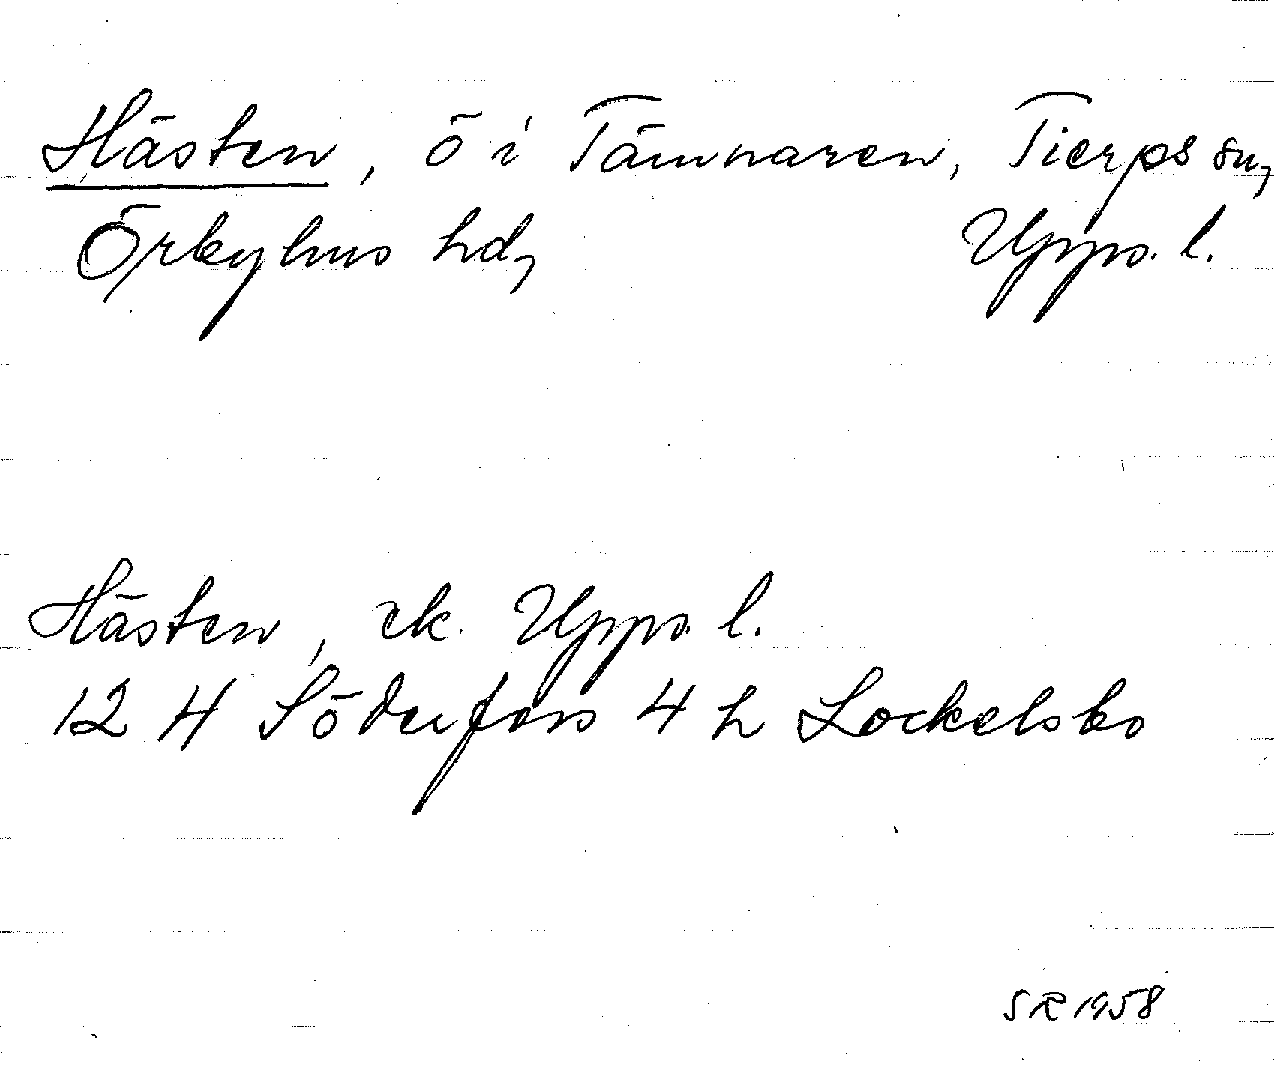 Hästen, ö i Tämnaren, Tierps sn,
Örbyhus hd, Upps. l.
Hästen, ek. Upps. l.
12 4 Söderfors 4 h Lockelsbo
SR 1958